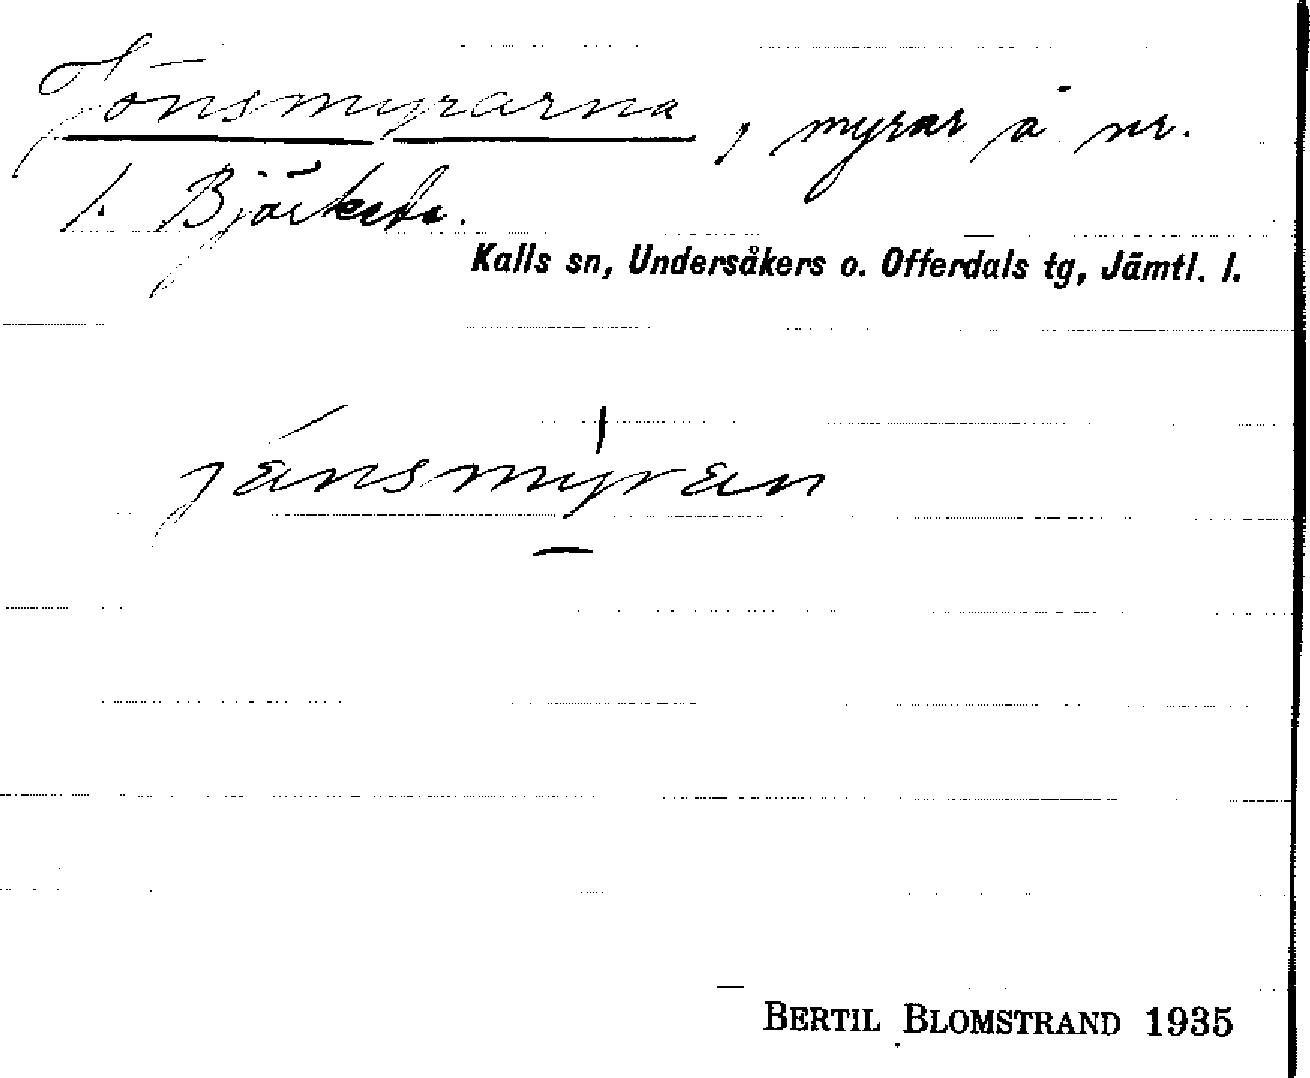 Jönsmyrarna, myrar å nr.
1. Björkede.
Kalls sn, Undersåkers o. Offerdals tg, Jämtl. l.
jänsmyran
BERTIL BLOMSTRAND 1935